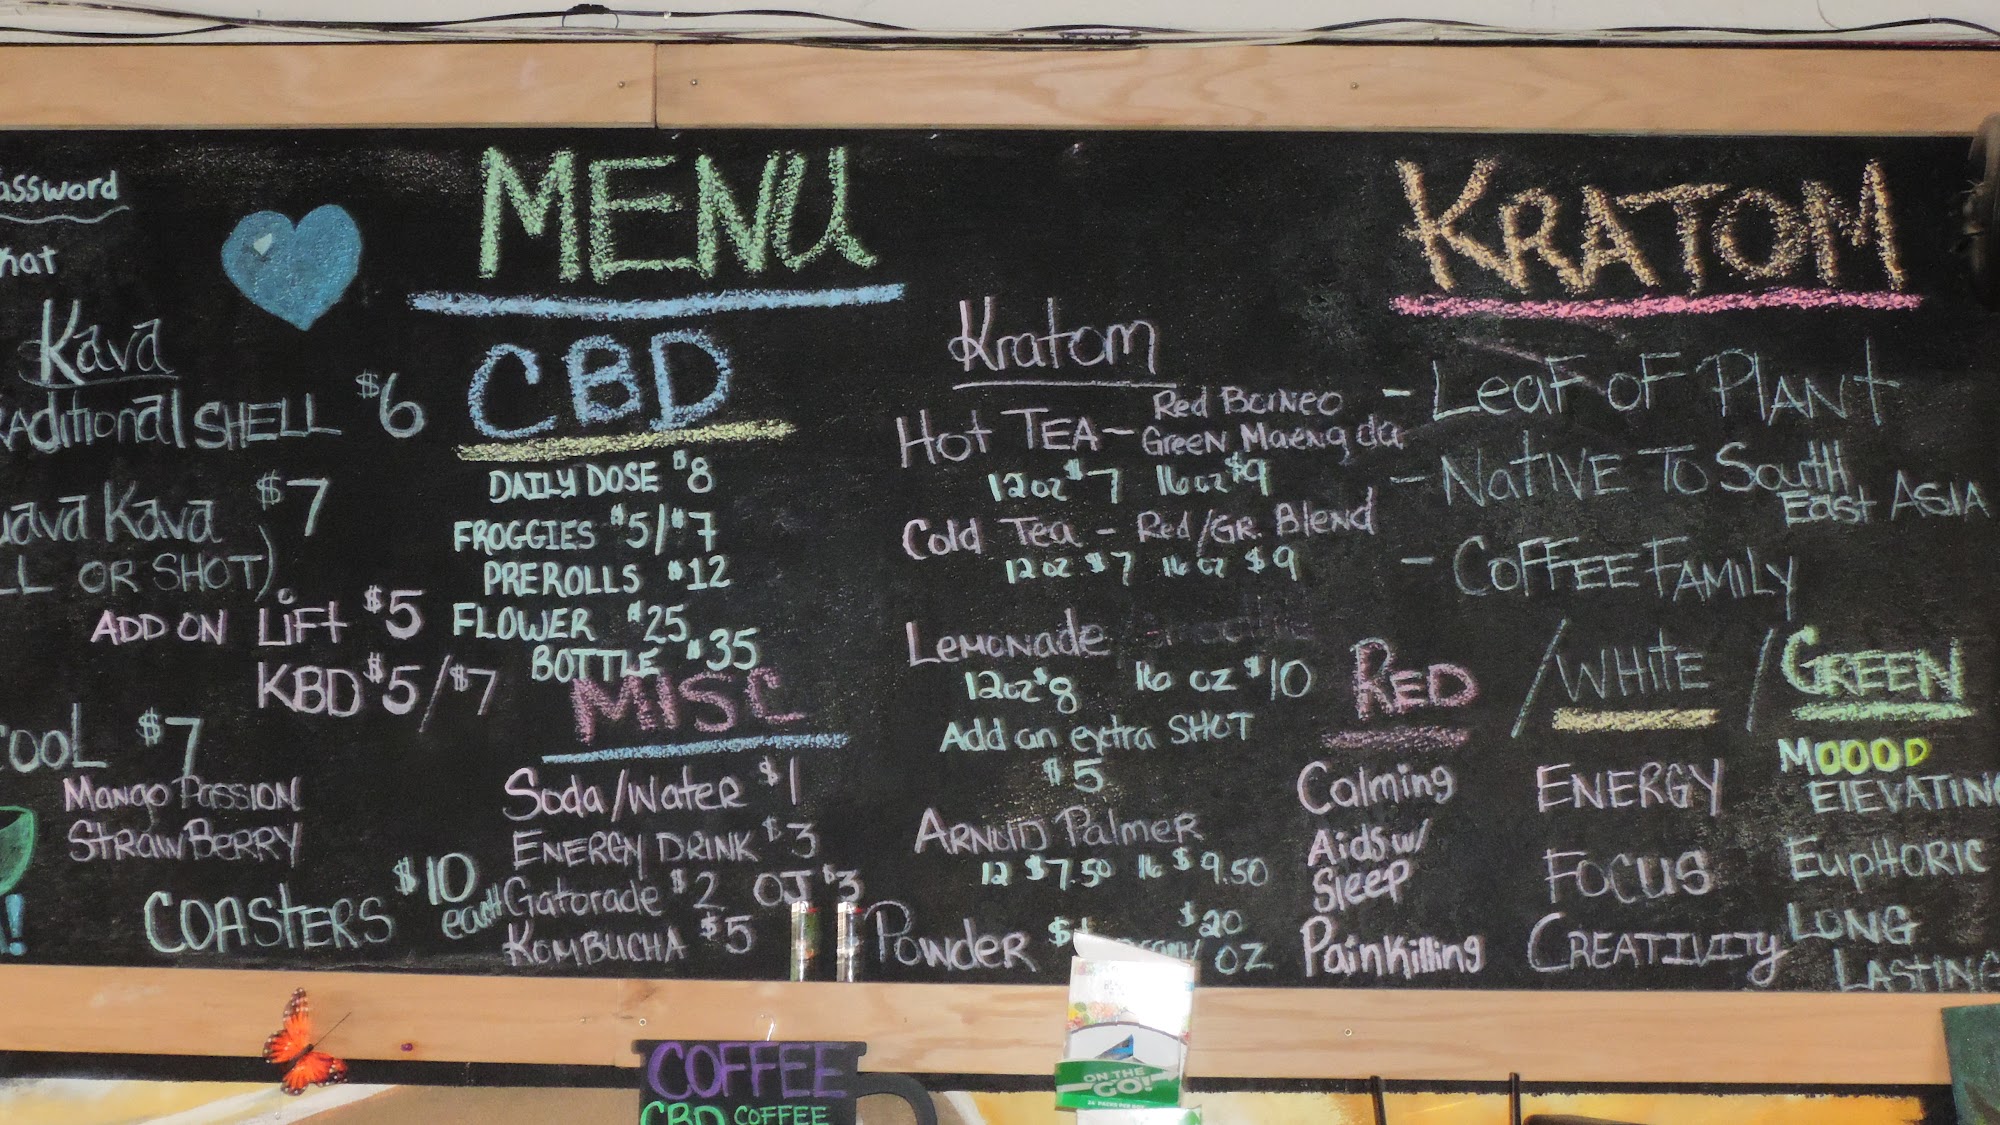 MENU
Kava
SHELL $6
Kava $7
OR SHOT)
ADD ON Lift $5
KBD $5/$7
$7
Mango Passion
StrawBerry
COASTERS $10
each
CBD
DAILY DOSE $8
FROGGIES $5/$7
PREROLLS $12
FLOWER $25
BOTTLE $35
MISC
Soda/Water $1
ENERGY DRINK $3
Gatorade $2 OJ $3
KOMBUCHA $5
Kratom
Hot TEA - Red Borneo
Green Maeng da
12oz $7 16oz $9
Cold Tea - Red/GR. Blend
12oz $7 16oz $9
Lemonade
12oz $8 16 oz $10
Add an extra SHOT
$5
ARNOLD Palmer
12 $7.50 16 $9.50
Powder $20
OZ
KRATOM
- Leaf of Plant
- Native To South
East Asia
- Coffee Family
RED / WHITE / GREEN
Calming
Aids w/
Sleep
Painkilling
ENERGY
FOCUS
CREATIVITY
MOOOD
ELEVATING
EupHORIC
LONG
LASTING
COFFEE
CBD COFFEE
ON THE
GO!